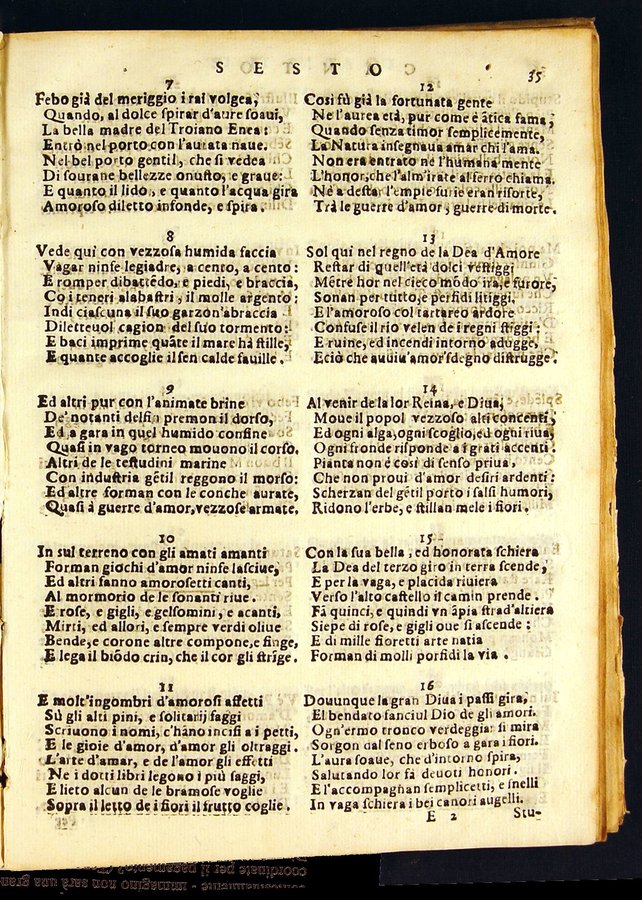 SESTO
35
7
Febo già del meriggio i rai volgea,
Quando, al dolce spirar d'aure soaui,
La bella madre del Troiano Enea:
Entrò nel porto con l'aurata naue.
Nel bel porto gentil, che si vedea
Di sourane bellezze onusto, e graue:
E quanto il lido, e quanto l'acqua gira
Amoroso diletto infonde, e spira.
8
Vede qui con vezzosa humida faccia
Vagar ninfe legiadre, a cento, a cento:
E romper dibattēdo, e piedi, e braccia,
Co i teneri alabastri, il molle argento:
Indi ciascuna il suo garzon'abraccia
Diletteuol cagion del suo tormento:
E baci imprime quāte il mare hà stille,
E quante accoglie il sen calde fauille.
9
Ed altri pur con l'animate brine
De' notanti delfin premon il dorso,
Ed a gara in quel humido confine
Quasi in vago torneo mouono il corso.
Altri de le testudini marine
Con industria gētil reggono il morso:
Ed altre forman con le conche aurate,
Quasi à guerre d'amor, vezzose armate.
10
In sul terreno con gli amati amanti
Forman giochi d'amor ninfe lasciue,
Ed altri fanno amorosetti canti,
Al mormorio de le sonanti riue.
E rose, e gigli, e gelsomini, e acanti,
Mirti, ed allori, e sempre verdi oliue
Bende, e corone altre compone, e finge,
E lega il biōdo crin, che il cor gli strīge.
11
E molt'ingombri d'amorosi affetti
Sù gli alti pini, e solitarij faggi
Scriuono i nomi, c'hāno incisi a i petti,
E le gioie d'amor, d'amor gli oltraggi.
L'arte d'amar, e de l'amor gli effetti
Ne i dotti libri legono i più saggi,
E lieto alcun de le bramose voglie
Sopra il letto de i fiori il frutto coglie.
12
Così fù già la fortunata gente
Ne l'aurea età, pur come è ātica fama,
Quando senza timor semplicemente,
La Natura insegnaua amar chi l'ama.
Non era entrato ne l'humana mente
L'honor, che l'alm'irate al ferro chiama.
Nè a destar l'empie furie eran risorte,
Trà le guerre d'amor, guerre di morte.
13
Sol qui nel regno de la Dea d'Amore
Restar di quell'età dolci vestiggi
Mētre hor nel cieco mōdo ira, e furore,
Sonan per tutto, e perfidi litiggi.
E l'amoroso col tartareo ardore
Confuse il rio velen de i regni stiggi:
E ruine, ed incendi intorno adugge,
E ciò che auuiu'amor sdegno distrugge.
14
Al venir de la lor Reina, e Diua,
Moue il popol vezzoso alti concenti,
Ed ogni alga, ogni scoglio, ed ogni riua,
Ogni fronde risponde a i grati accenti.
Pianta non é cosi di senso priua,
Che non proui d'amor desiri ardenti:
Scherzan del gētil porto i salsi humori,
Ridono l'erbe, e stillan mele i fiori.
15
Con la sua bella, ed honorata schiera
La Dea del terzo giro in terra scende,
E per la vaga, e placida riuiera
Verso l'alto castello il camin prende.
Fà quinci, e quindi vn āpia strad'altiera
Siepe di rose, e gigli oue si ascende:
E di mille fioretti arte natia
Forman di molli porfidi la via.
16
Douunque la gran Diua i passi gira,
El bendato fanciul Dio de gli amori.
Ogn'ermo tronco verdeggiar si mira
Sorgon dal seno erboso a gara i fiori.
L'aura soaue, che d'intorno spira,
Salutando lor fà deuoti honori.
E l'accompagnan semplicetti, e snelli
In vaga schiera i bei canori augelli.
E 2
Stu-